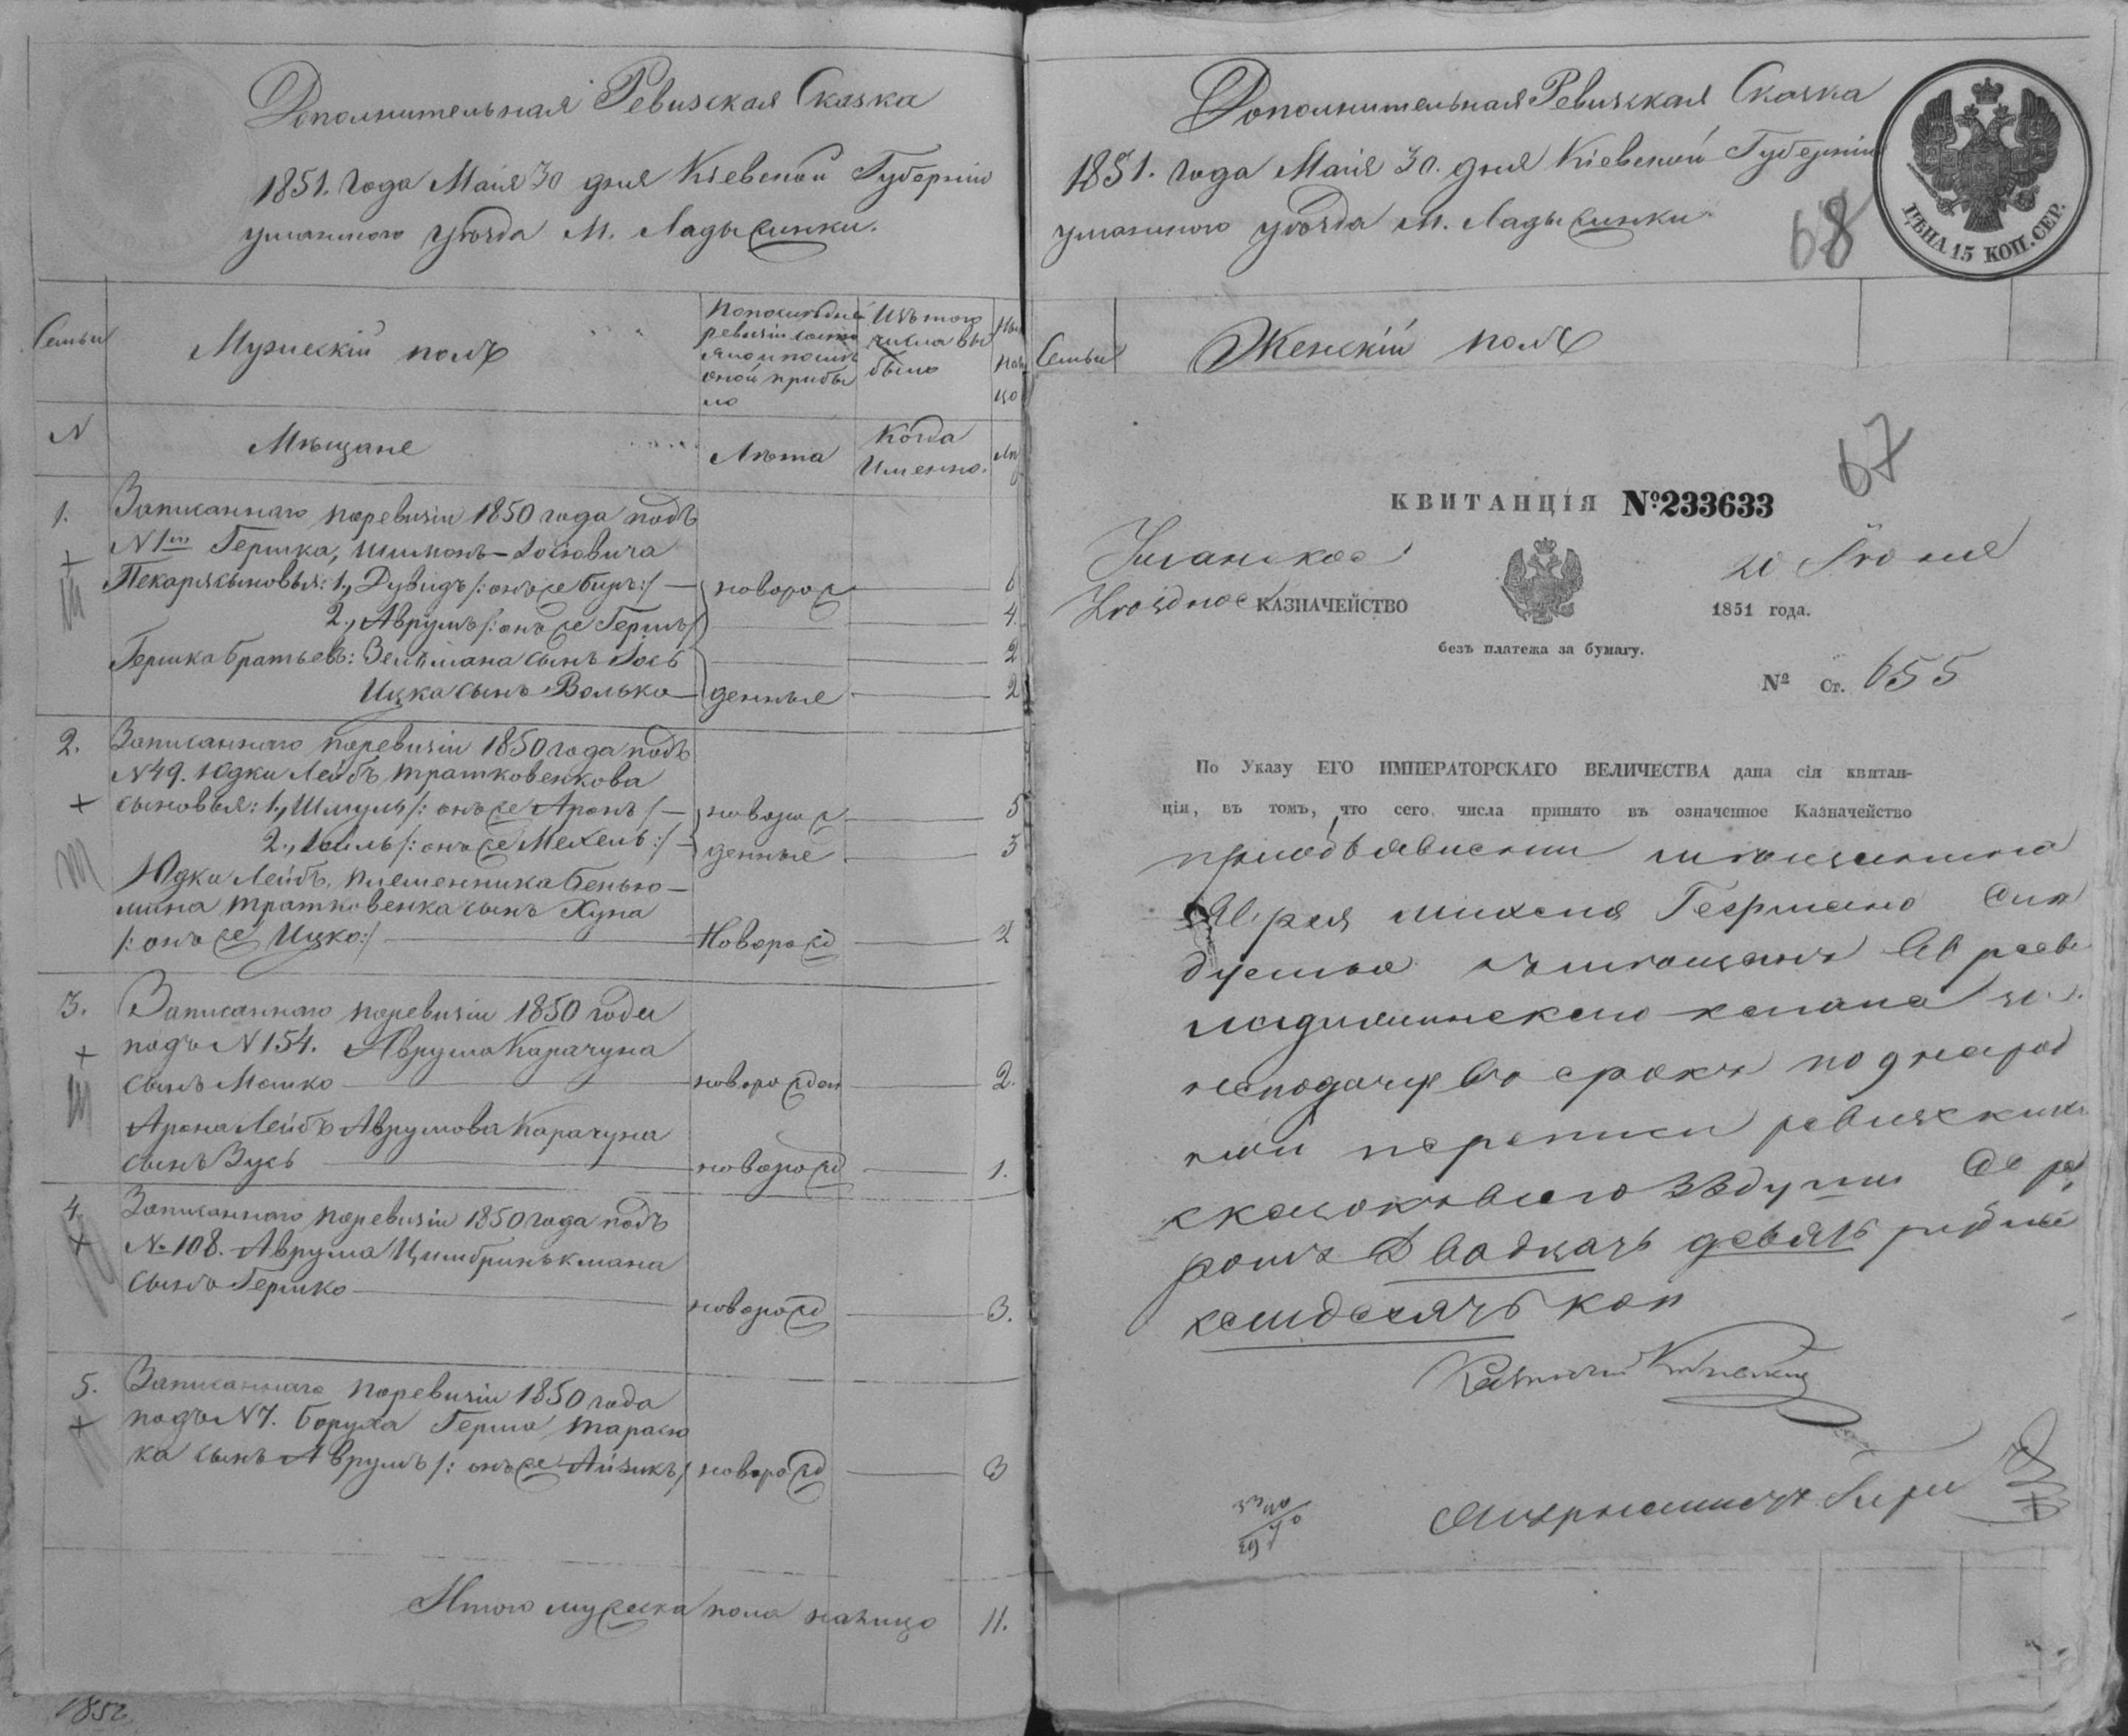 Дополнительная Ревизская Сказка
1851. года Маія 30 дня Кіевской Губерніи
уманского уѣзда М. Ладыжинки.
Семьи
Мужескій полъ
Изъ того
числа вы
было
N
Мѣщане
Лѣта
Когда
Именно.
1. Записаннаго поревизіи 1850 года подъ
N 1м Гершка, Шимонъ-Іосіовича
Пекаря сыновья: 1, Дувидъ /: онъ же :/ — новорож 6
2, Аврумъ /: онъ же Гершъ / 4.
Гершка братьевъ: Зельмана сынъ Іось 2
Ицка сынъ Волько — денные 2
2. Записаннаго поревизіи 1850 года подъ
N 49. Юдки Лейбъ Тратковенкова
сыновья: 1, Шмуль /: онъ же Аронъ / — новорож 5
2, /: онъ же Мехель :/ — денные 3
Юдки Лейбъ, племенника Бенью-
мина Тратковенка сынъ Хуна
/: онъ же Ицко :/ — Новорожд 2
3. Записаннаго поревизіи 1850 года
подъ N 154. Аврума Карачуна
сынъ Мошко — новорожден 2.
Арона Лейбъ Аврумова Карачуна
сынъ Зусь — новорожд 1.
4. Записаннаго поревизіи 1850 года подъ
№ 108. Аврума Цимбринькмана
сынъ Гершко — новорожд 3.
5. Записаннаго поревизіи 1850 года
подъ N 7. Боруха Герша Тарасю
ка сынъ Аврумъ /: онъ же Айзикъ / новорожд 3
Итого мужеска пола налицо 11.
1852
Дополнительная Ревизская Сказка
1851. года Маія 30. дня Кіевской Губерніи
уманского уѣзда М. Ладыжинки
68
ЦѢНА 15 КОП. СЕР.
Семьи
Женскій полъ
67
КВИТАНЦІЯ №233633
Уманское
Уѣздное КАЗНАЧЕЙСТВО
20 Іюня
1851 года.
безъ платежа за бумагу.
№ Ст. 655
По Указу ЕГО ИМПЕРАТОРСКАГО ВЕЛИЧЕСТВА дана сія квитан-
ція, въ томъ, что сего числа принято въ означенное Казначейство
при объявленіи мѣщанина
Михеля
мѣщанъ Еврее
ладыжинского
неподачу во срокъ по народ
ной переписи ревизскихъ
сказокъ всего души Сереб
ромъ Двадцать девять рублей
семдесятъ коп